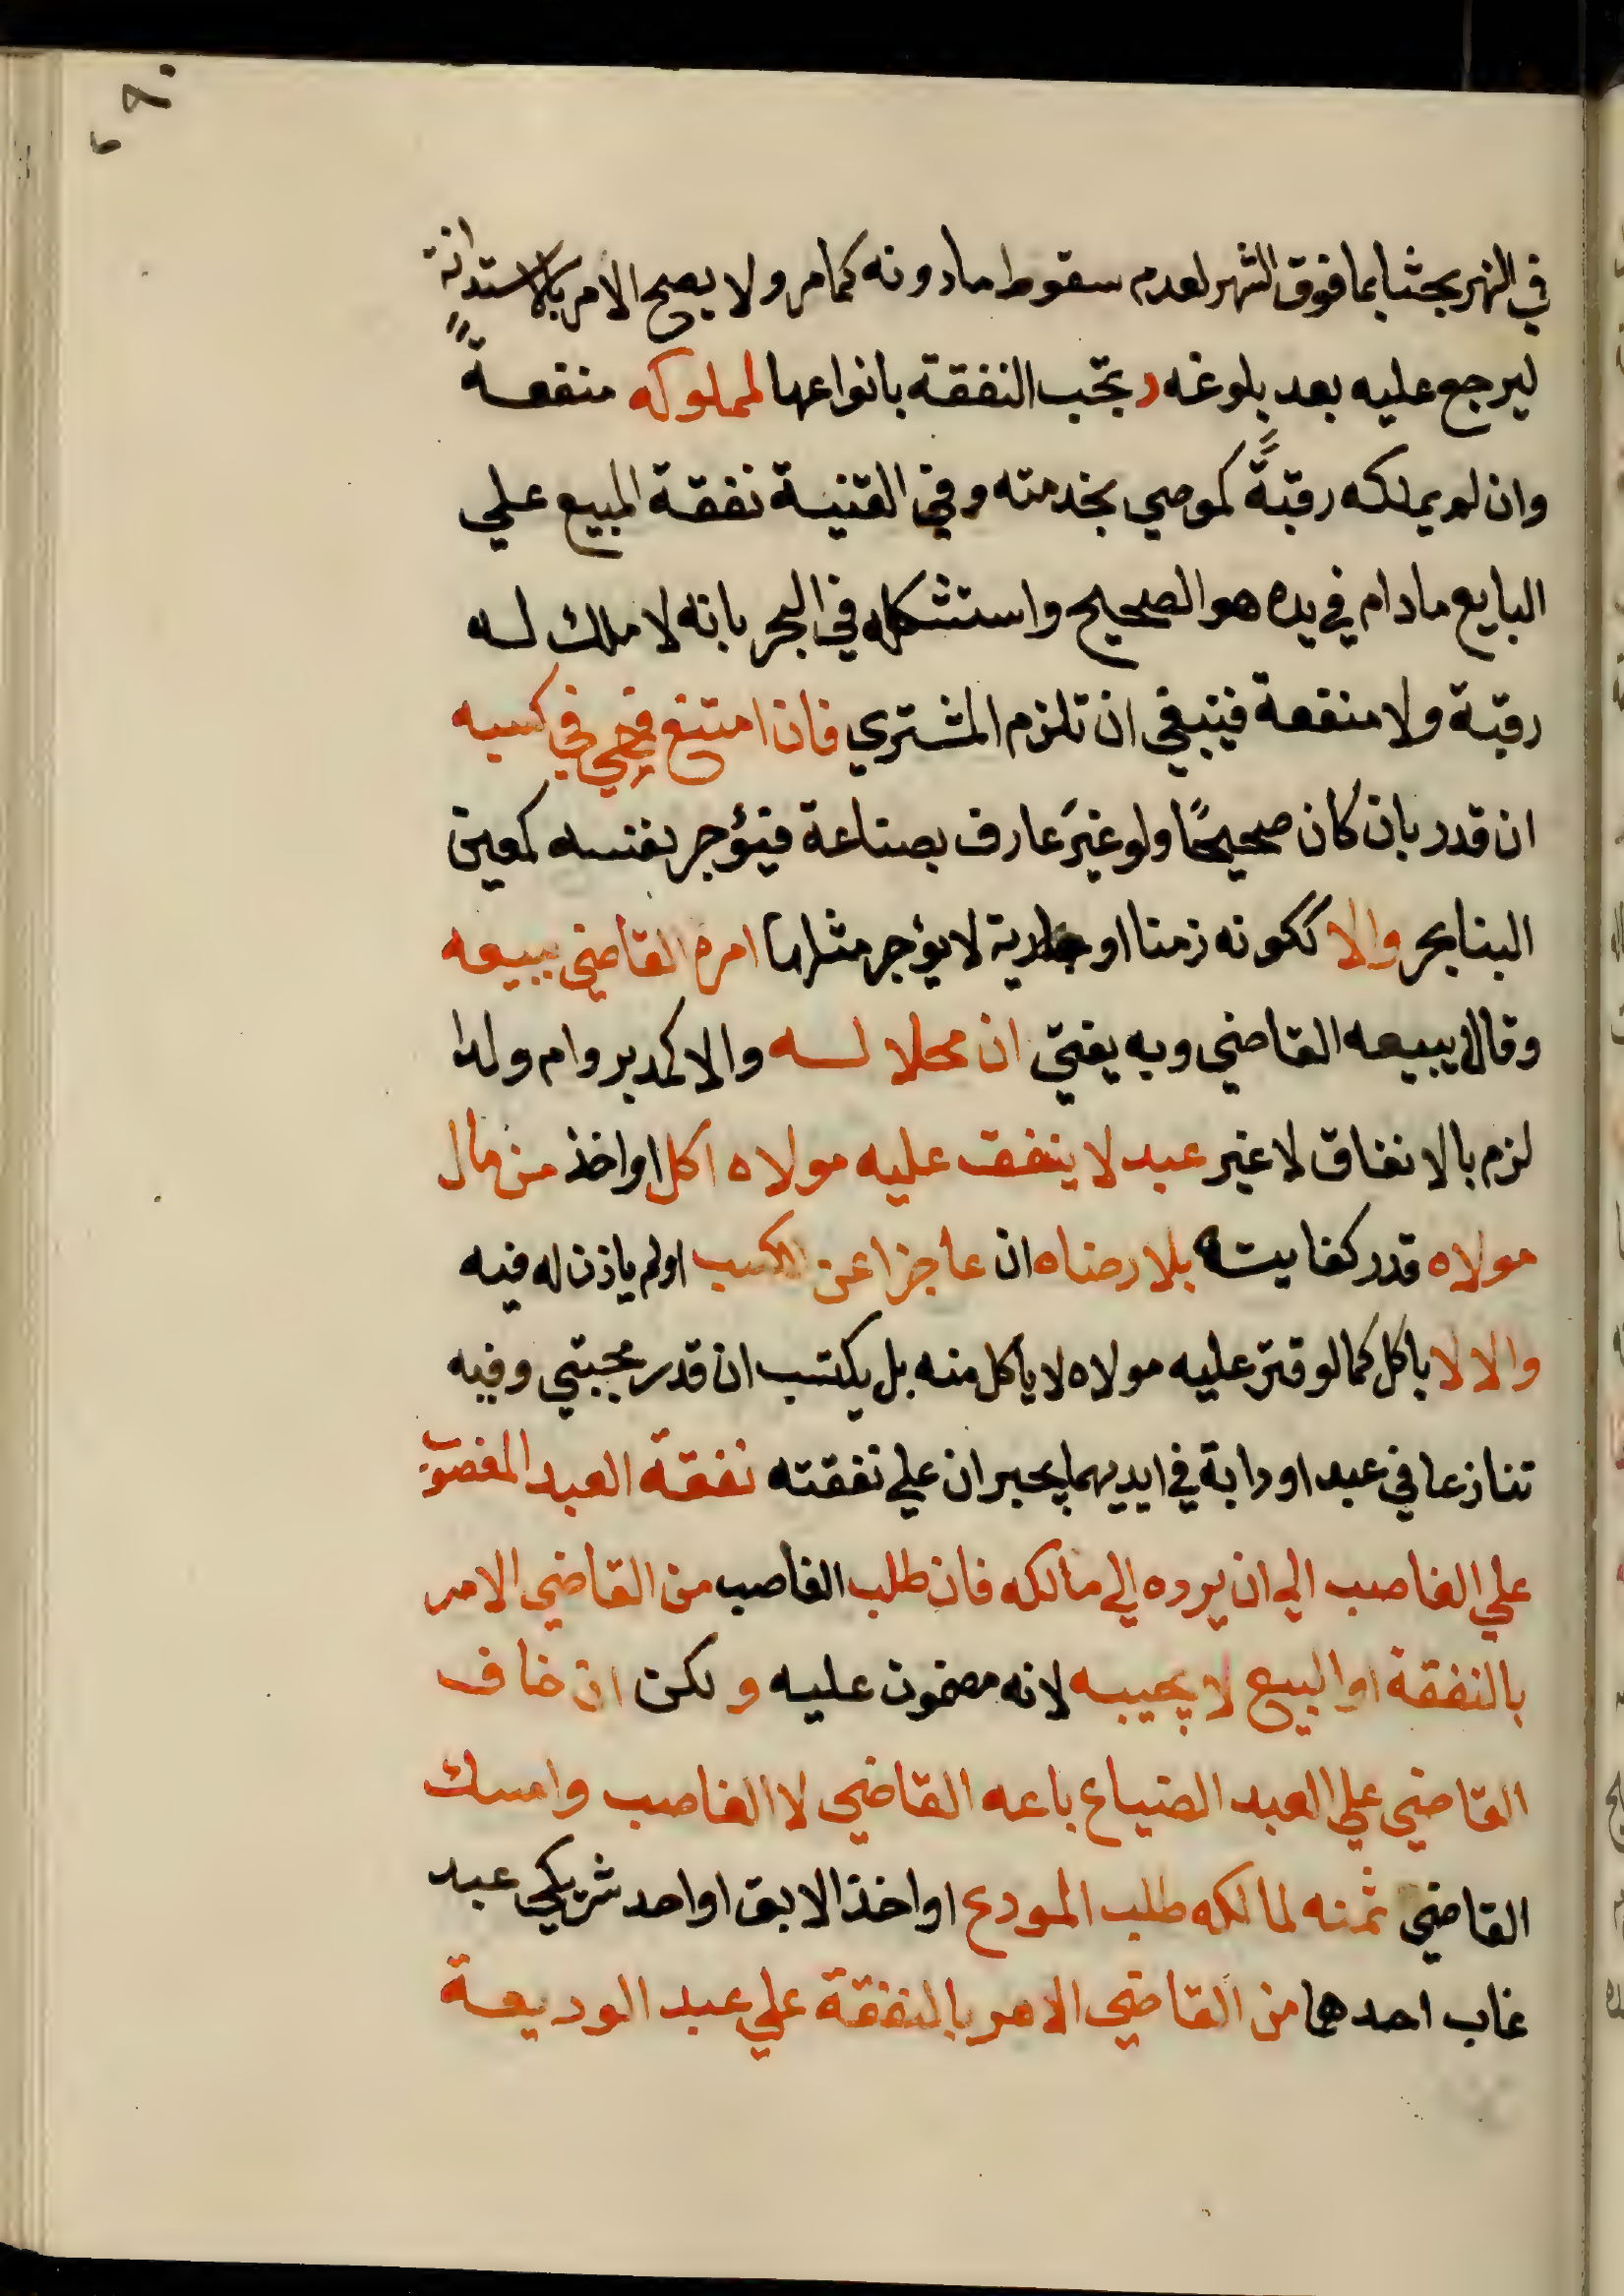 في النهر بحثا بما فوق الشهر لعدم سقوط ما دونه كما مر ولا يصح الامر بالاستدانة
ليرجع عليه بعد بلوغه و تجب النفقة بانواعها لمملوكه منفعةً
وان لم يملكه رقبةً كموصي بخدمته وفي القنية نفقة المبيع علي
البايع مادام في يده هو الصحيح واستشكله في البحر بانه لا ملك له
رقبة ولا منفعة فينبغي ان تلزم المشتري فان امتنع فهي في كسبه
ان قدر بان كان صحيحًا ولو غيرَ عارف بصناعة فيؤجر نفسه كمعين
البنا بحر والا ككونه زمنا او جارية لا يؤجر مثلها امره القاضي ببيعه
وقالا يبيعه القاضي وبه يفتي ان محلا له والا كمدبر وام ولد
لزم بالانفاق لا غير عبد لا ينفق عليه مولاه اكل او اخذ من مال
مولاه قدر كفايته بلا رضاه ان عاجزا عن الكسب او لم ياذن له فيه
والا لا ياكل كما لو قتر عليه مولاه لا ياكل منه بل يكتسب ان قدر مجبتي وفيه
تنازعا في عبد او دابة في ايديهما يجبران علي نفقته نفقة العبد المغصوب
علي الغاصب الي ان يرده الي مالكه فان طلب الغاصب من القاضي الامر
بالنفقة او البيع لا يجيبه لانه مضمون عليه و لكن ان خاف
القاضي علي العبد الضياع باعه القاضي لا الغاصب وامسك
القاضي ثمنه لمالكه طلب المودع او اخذ الابق او احد شريكي عبد
غاب احدهما من القاضي الامر بالنفقة علي عبد الوديعة